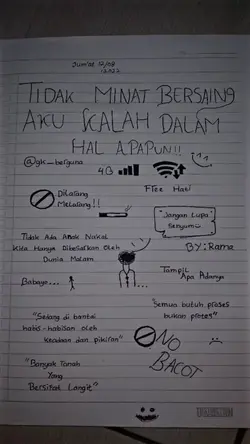 Jum'at 12/08
2022
TIDAK MINAT BERSAING
AKU KALAH DALAM
HAL APAPUN!!
@gk_berguna
4G
Free Hati
Dilarang
Melarang!!
"Jangan Lupa
Senyum☺
Tidak Ada Anak Nakal
Kita Hanya Dibesarkan Oleh
Dunia Malam
BY:Rama
Babayo...
Tampil
Apa Adanya
"Semua butuh proses
bukan protes"
"Sedang di bantai
habis-habisan oleh
Keadaan dan pikiran"
NO
BACOT
"Banyak Tanah
Yang
Bersifat Langit"